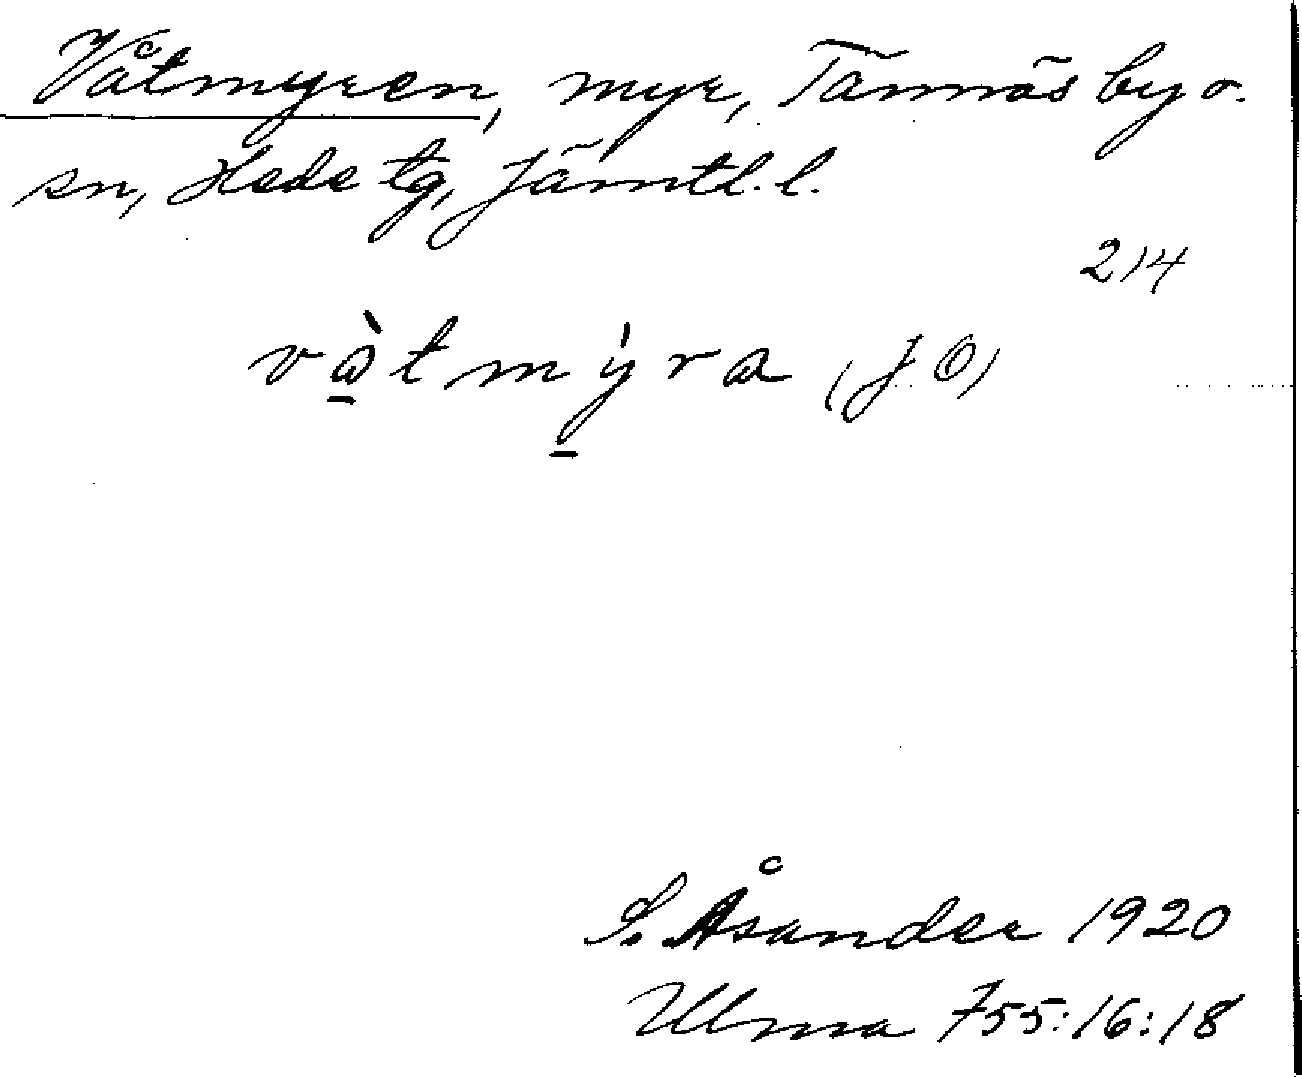 Våtmyren, myr, Tännäs by o.
sn, Hede tg, Jämtl. l.
214
vàtmýra (JO)
S. Åsander 1920
Ulma 755:16:18